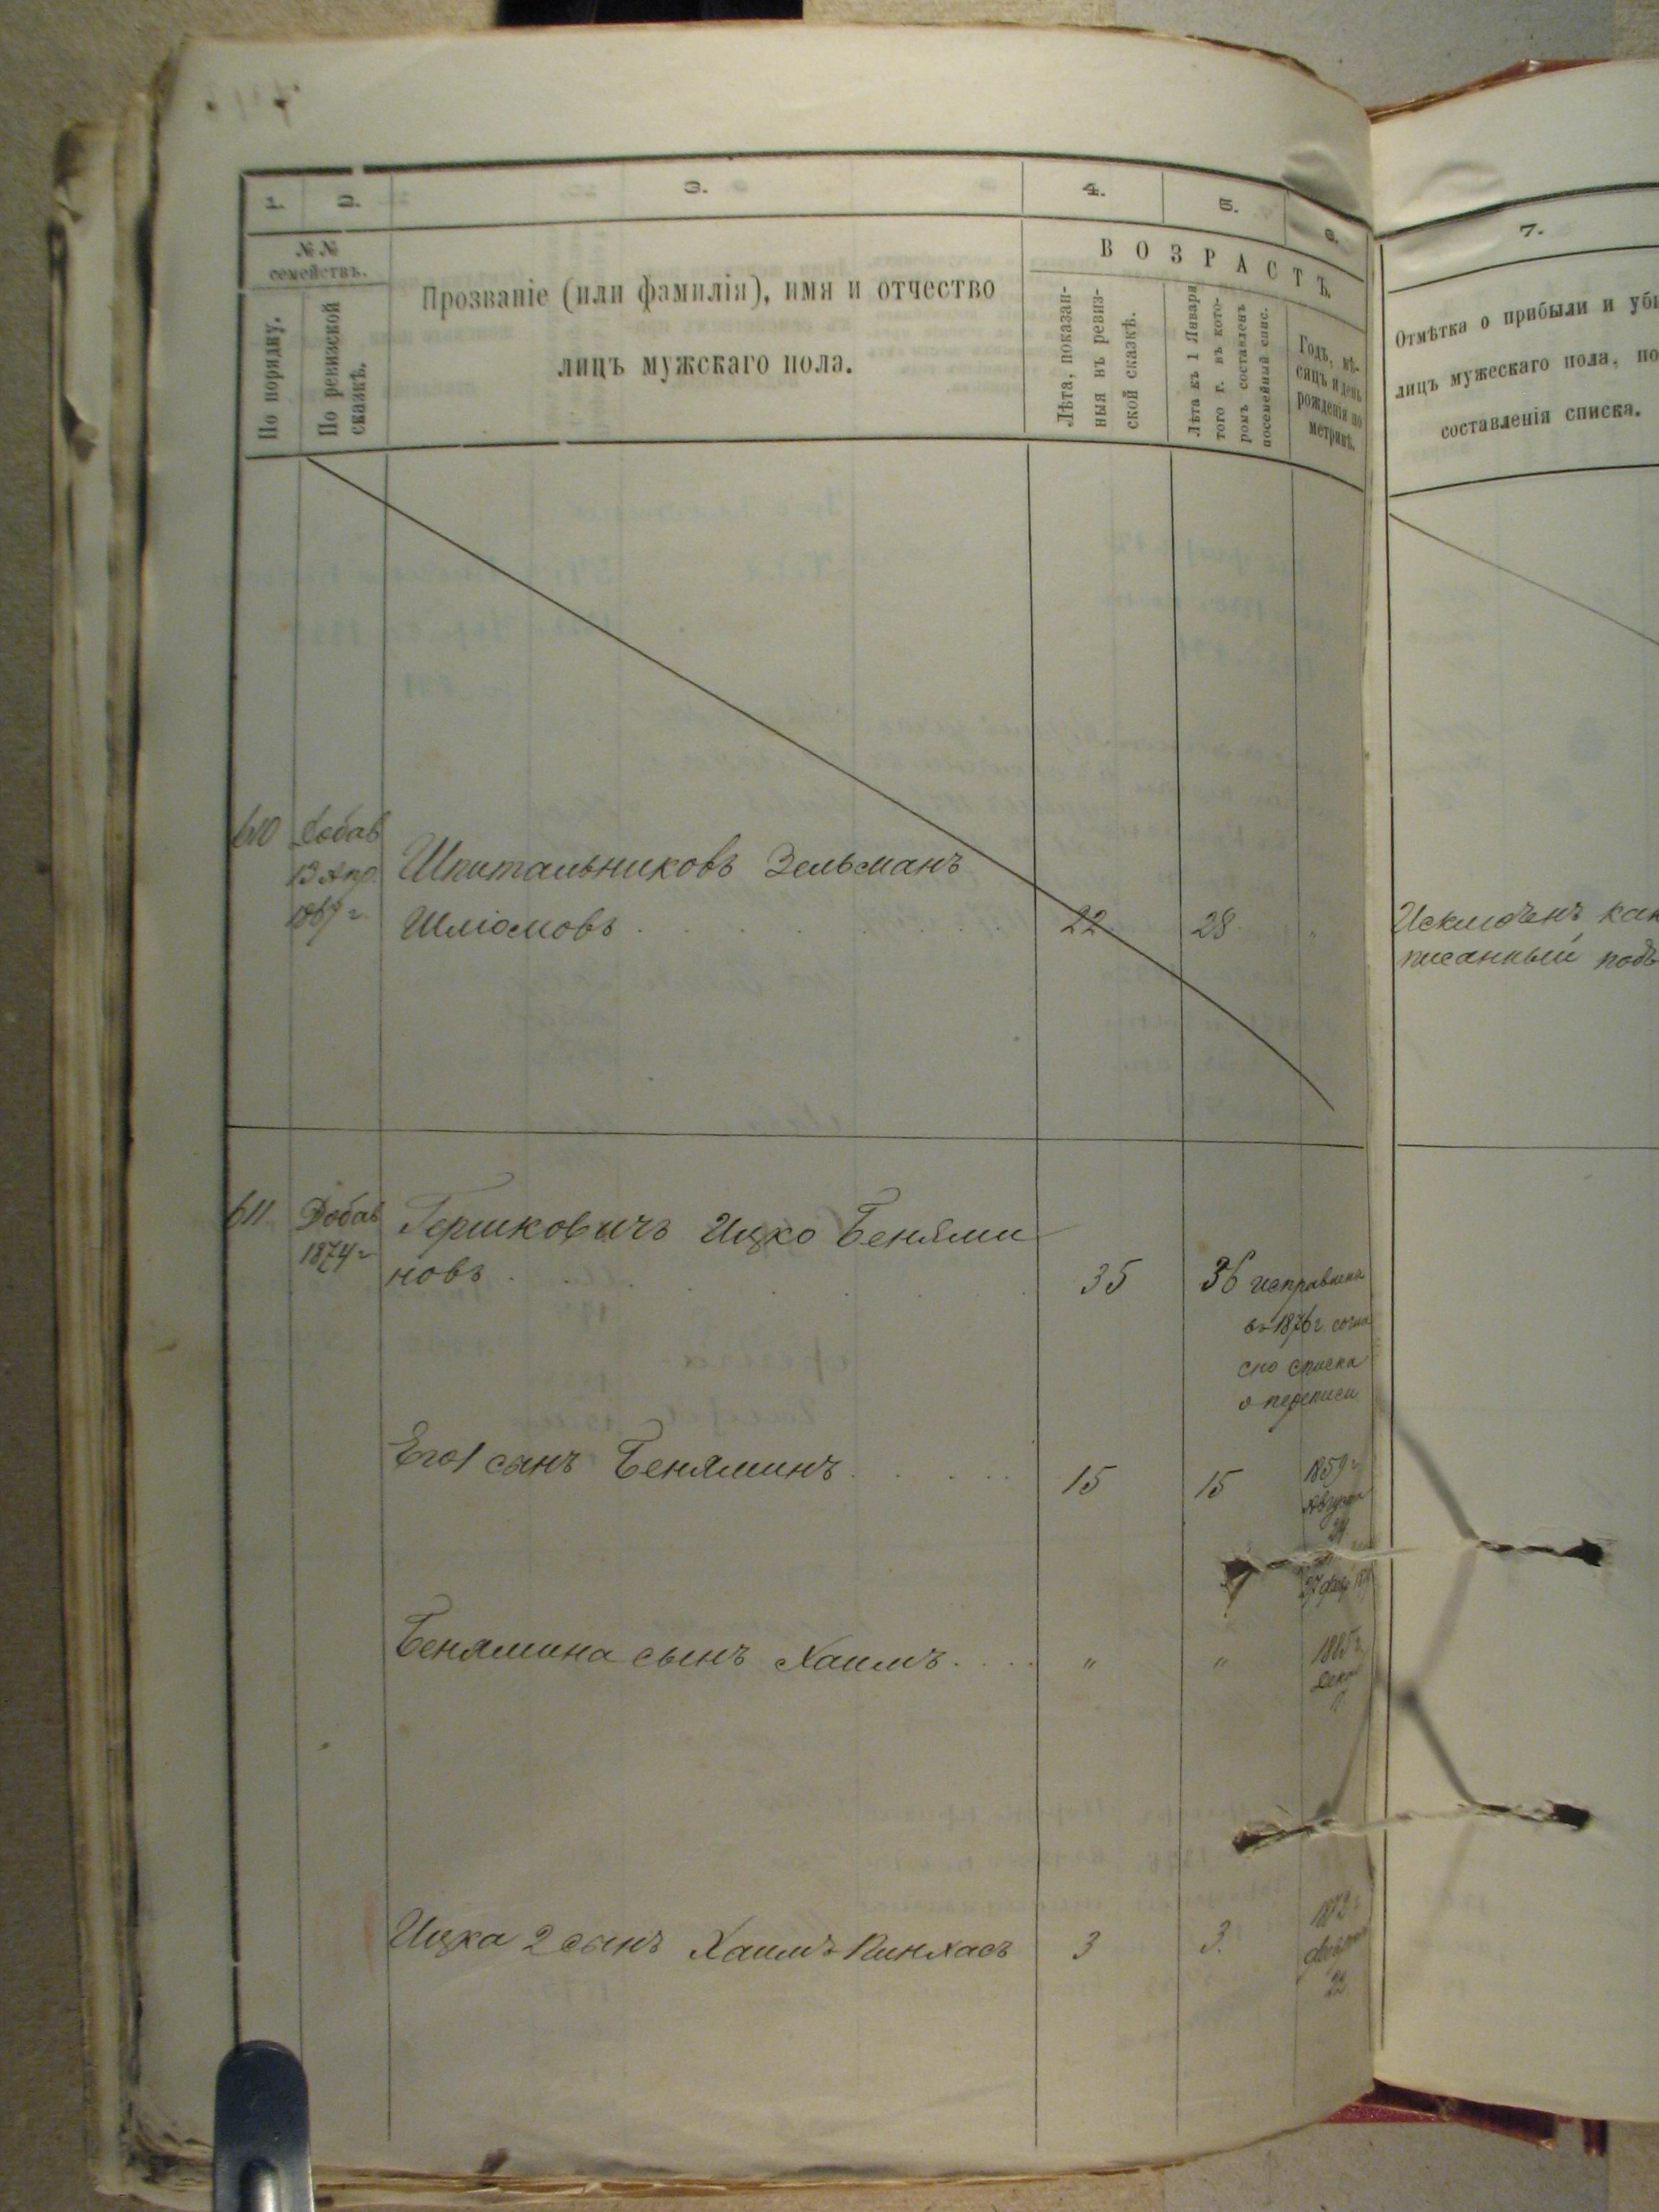 1.
2.
3.
4.
5.
6.
7.
№№
семействъ.
По порядку.
По ревизской
сказкѣ.
Прозваніе (или фамилія), имя и отчество
лицъ мужскаго пола.
ВОЗРАСТЪ.
Лѣта, показан-
ныя въ ревиз-
ской сказкѣ.
Лѣта къ 1 Января
того г. въ кото-
ромъ составленъ
посемейный спис.
Годъ, мѣ-
сяцъ и день
рожденія по
метрикѣ.
Отмѣтка о прибыли и убы
лицъ мужескаго пола, по
составленія списка.
610 Добав
13 Апр. Шпитальниковъ Зельманъ
1867 г. Шліомовъ 22 28 "
Исключенъ как
писанный подъ
611 Добав Гершковичъ Ицко Беньями
1874 г новъ 35 36 исправлена
въ 1876 г. согла
сно списка
о переписи
Его 1 сынъ Беняминъ 15 15 1859 г
Августа
24
27 февр
Бенямина сынъ Хаимъ " " 1885 г
Декаб
Ицка 2 сынъ Хаимъ-Пинхасъ 3 3. 1872 г
февраля
22